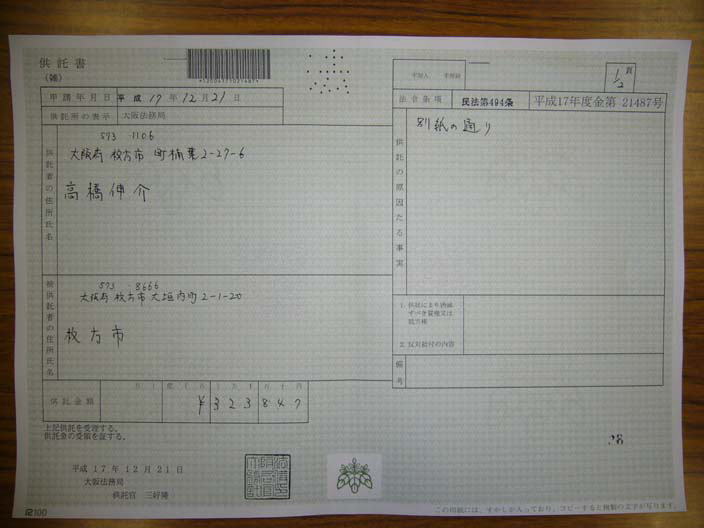 供託書
(雑)
申請年月日 平成 17年12月21日
供託所の表示 大阪法務局
供託者の住所氏名
573-1106
大阪府 枚方市 町楠葉2-27-6
高橋伸介
被供託者の住所氏名
573-8666
大阪府枚方市大垣内町2-1-20
枚方市
供託金額 ¥323847
上記供託を受理する。
供託金の受領を証する。
平成 17年 12月 21日
大阪法務局
供託官 三好隆
1/2 頁
法令条項 民法第494条 平成17年度金第 21487号
供託の原因たる事実
別紙の通り
1. 供託により消滅
すべき質権又は
抵当権
2. 反対給付の内容
備考
この用紙には、すかしが入っており、コピーすると複製の文字が写ります。